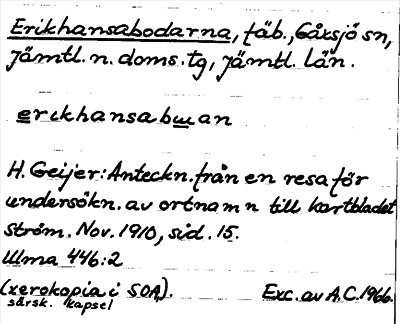 Erikhansabodarna, fäb., Gåxsjö sn,
Jämtl. n. doms. tg, Jämtl. län.
erikhansabuan
H. Geijer: Anteckn. från en resa för
undersökn. av ortnamn till kartbladet
Ström. Nov. 1910, sid. 15.
Ulma 446:2
(xerokopia i SOA). Exc. av A.C. 1966.
särsk. kapsel